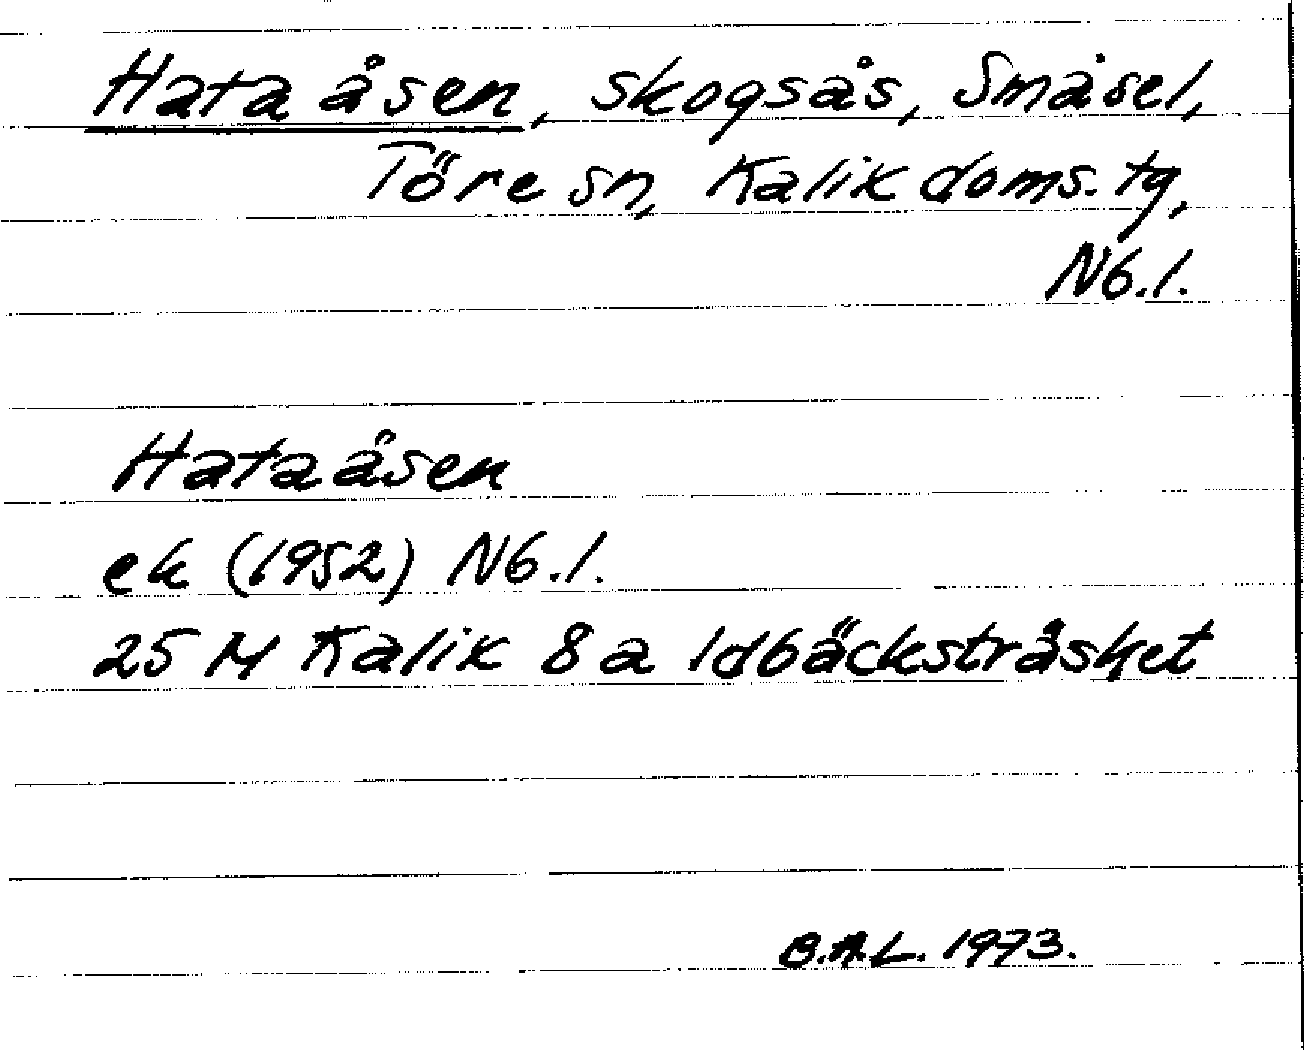 Hataåsen, skogsås, Småsel,
Töre sn, Kalix doms. tg,
Nb.l.
Hataåsen
ek (1952) Nb.l.
25 M Kalix 8 a Idbäcksträsket
B.A.L. 1973.